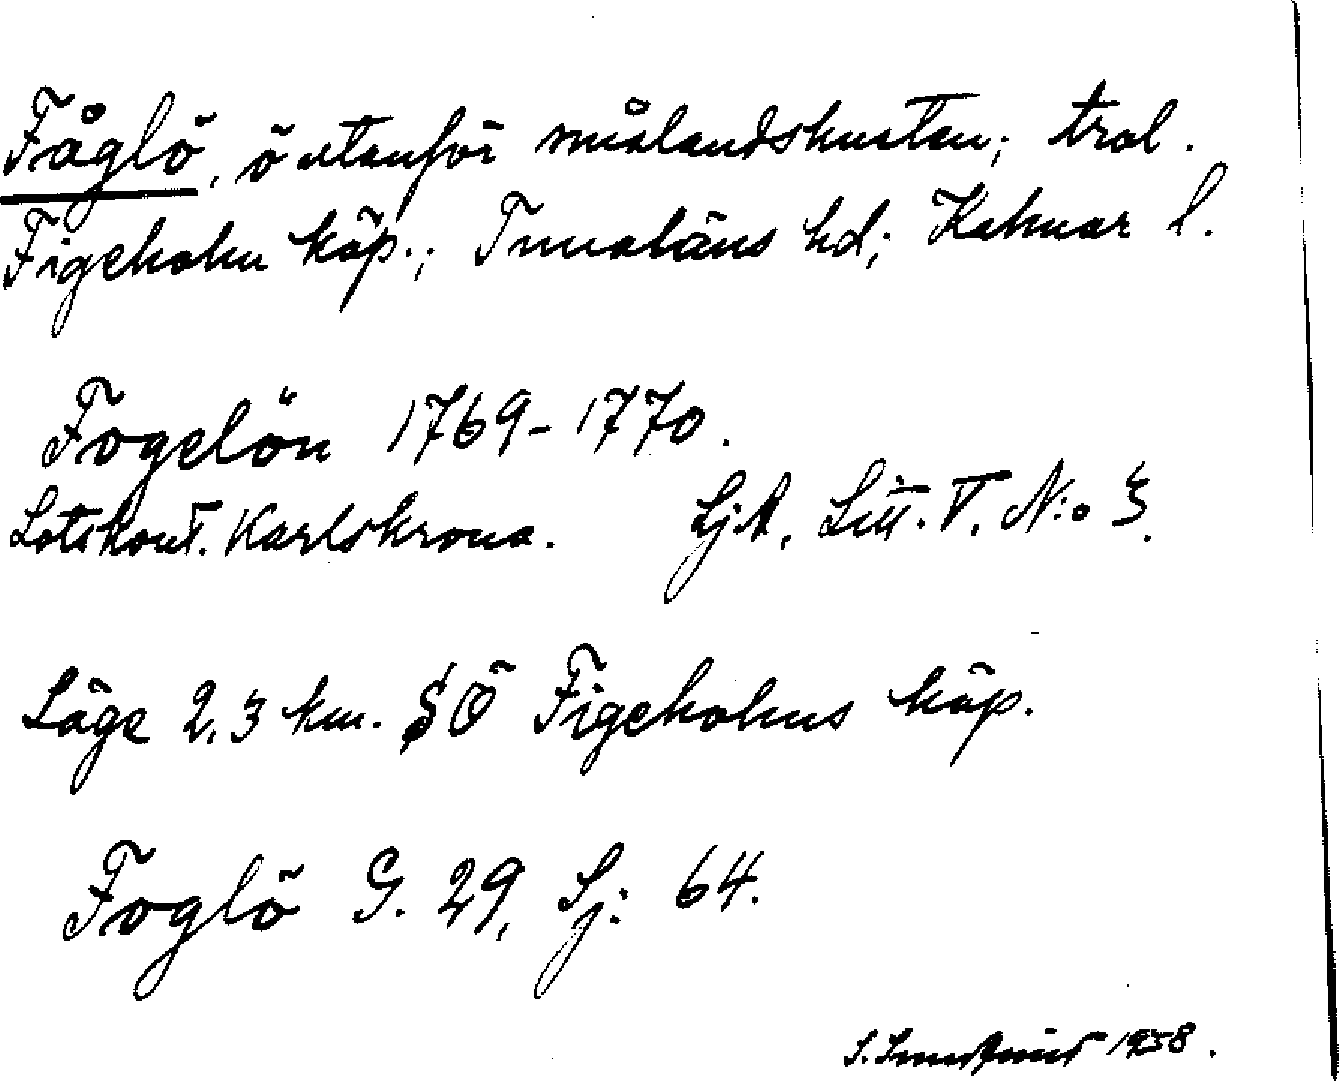 Fåglö, ö utanför smålandskusten; trol.
Figeholm köp.; Tunaläns hd; Kalmar l.
Fogelön 1769-1770.
Lotskont. Karlskrona. Sj.A. Litt. V. N:o 3.
Läge 2,3 km. SÖ Figeholms köp.
Foglö G. 29, Sj: 64.
S. 1958.